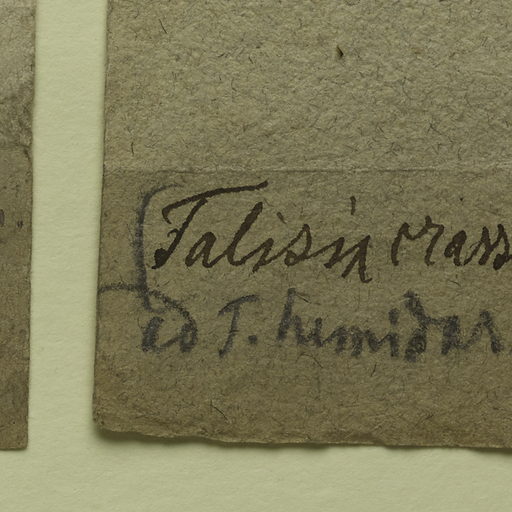 Talisia crass
ad T. humidar